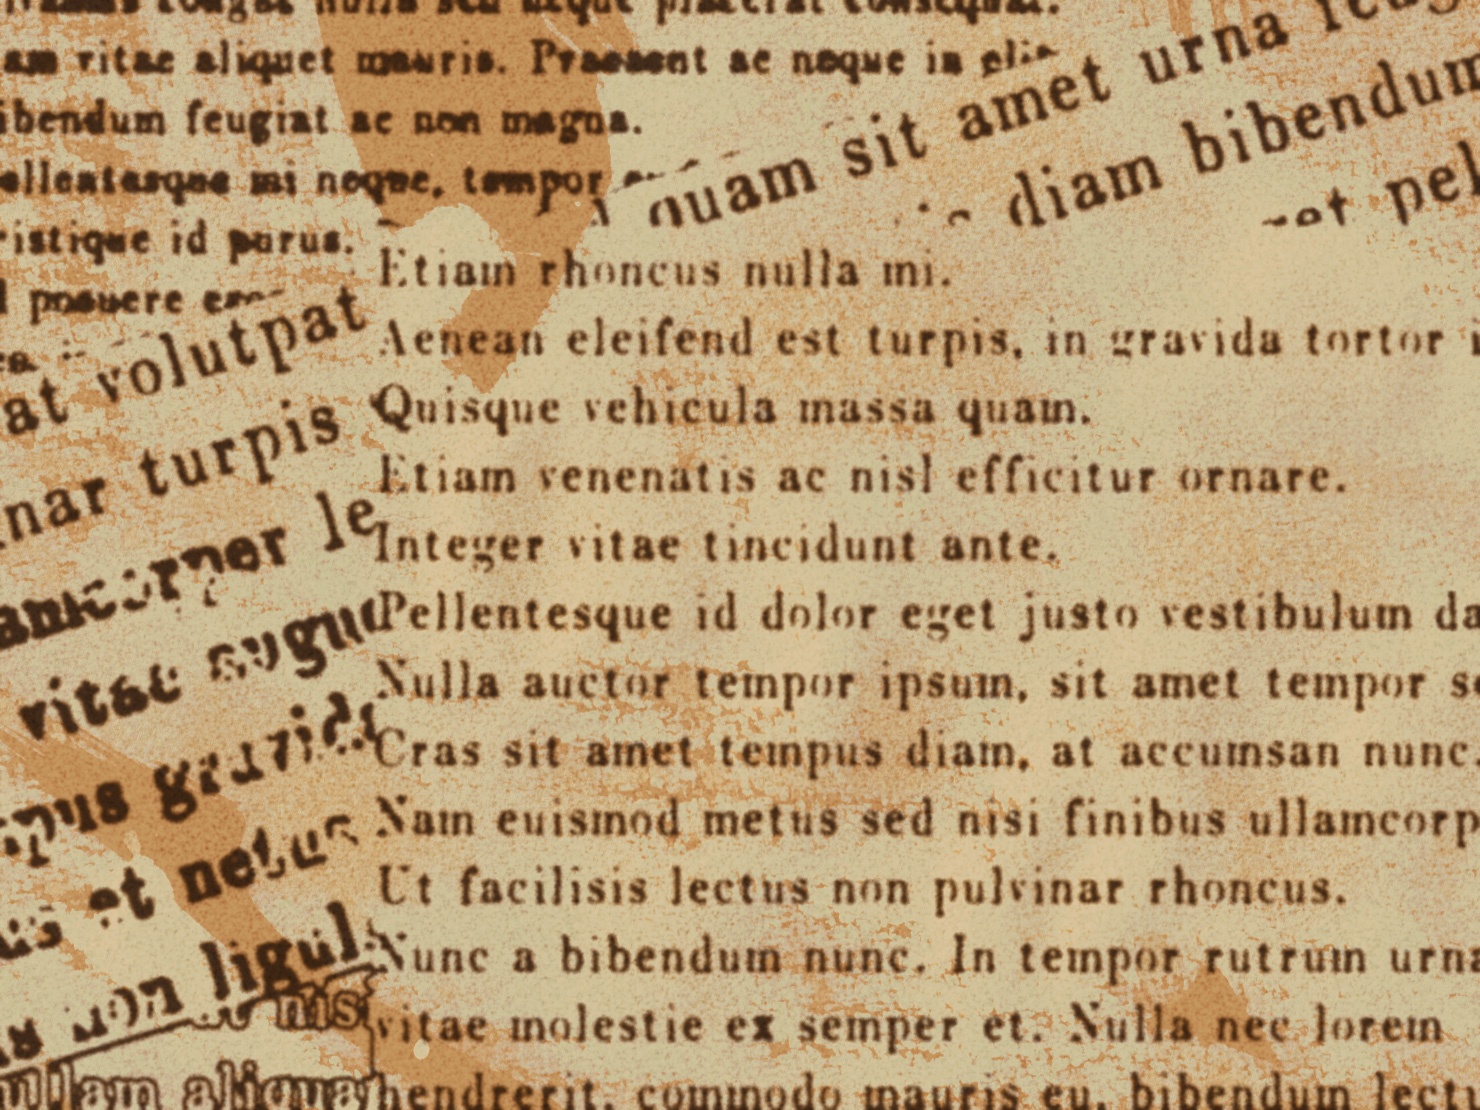 vitae aliquet mauris. Praesent ac neque in
bibendum feugiat ac non magna.
Pellentesque mi neque, tempor
tristique id purus.
posuere
quam sit amet urna
diam bibendum
volutpat
turpis
vitae augue
gravida
et netus
non ligula
aliquam
Etiam rhoncus nulla mi.
Aenean eleifend est turpis, in gravida tortor
Quisque vehicula massa quam.
Etiam venenatis ac nisl efficitur ornare.
Integer vitae tincidunt ante.
Pellentesque id dolor eget justo vestibulum da
Nulla auctor tempor ipsum, sit amet tempor se
Cras sit amet tempus diam, at accumsan nunc.
Nam euismod metus sed nisi finibus ullamcorp
Ut facilisis lectus non pulvinar rhoncus.
Nunc a bibendum nunc. In tempor rutrum urna
vitae molestie ex semper et. Nulla nec lorem
hendrerit, commodo mauris eu, bibendum lectu